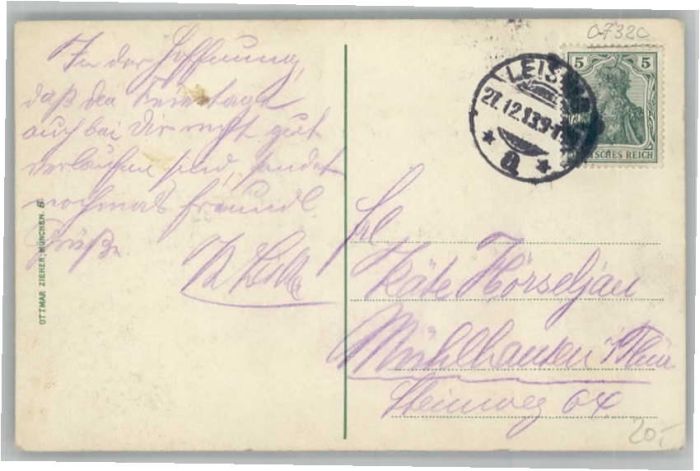 In der Hoffnung,
daß die Feiertage
auch bei Dir recht gut
verlaufen sind, sendet
nochmals freundl.
Grüße
OTTMAR ZIEHER, MÜNCHEN.
07320
LEIS
27.12.13.9-1
* a *
5 5
DEUTSCHES REICH
Frl
Käte
Mühlhausen i/Thür
Steinweg 64
20,-